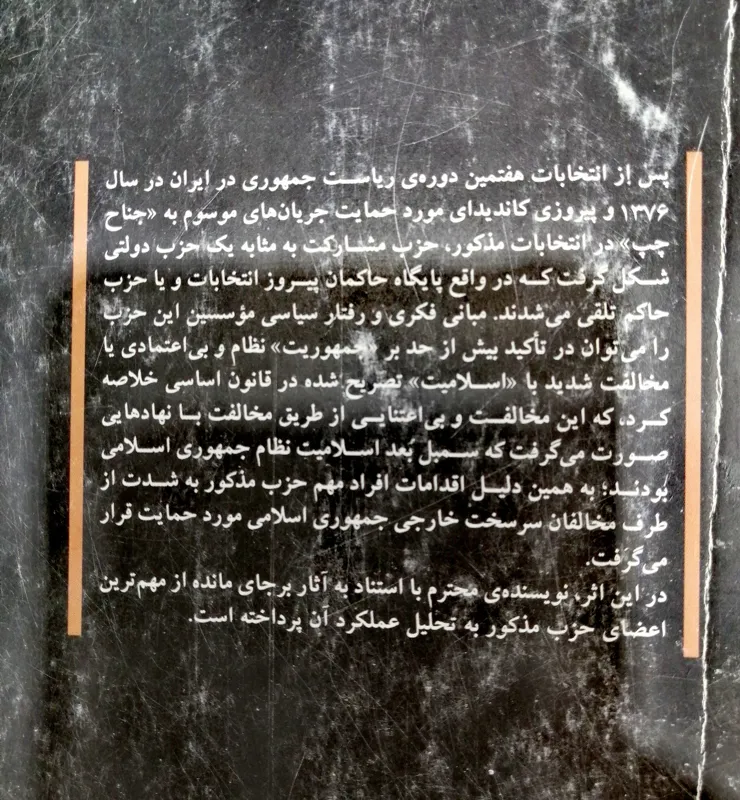 پس از انتخابات هفتمین دوره‌ی ریاست جمهوری در ایران در سال
۱۳۷۶ و پیروزی کاندیدای مورد حمایت جریان‌های موسوم به «جناح
چپ» در انتخابات مذکور، حزب مشارکت به مثابه یک حزب دولتی
شکل گرفت که در واقع پایگاه حاکمان پیروز انتخابات و یا حزب
حاکم تلقی می‌شدند. مبانی فکری و رفتار سیاسی مؤسسین این حزب
را می‌توان در تأکید بیش از حد بر «جمهوریت» نظام و بی‌اعتمادی یا
مخالفت شدید با «اسلامیت» تصریح شده در قانون اساسی خلاصه
کرد، که این مخالفت و بی‌اعتنایی از طریق مخالفت با نهادهایی
صورت می‌گرفت که سمبل بُعد اسلامیت نظام جمهوری اسلامی
بودند؛ به همین دلیل اقدامات افراد مهم حزب مذکور به شدت از
طرف مخالفان سرسخت خارجی جمهوری اسلامی مورد حمایت قرار
می‌گرفت.
در این اثر، نویسنده‌ی محترم با استناد به آثار برجای مانده از مهم‌ترین
اعضای حزب مذکور به تحلیل عملکرد آن پرداخته است.